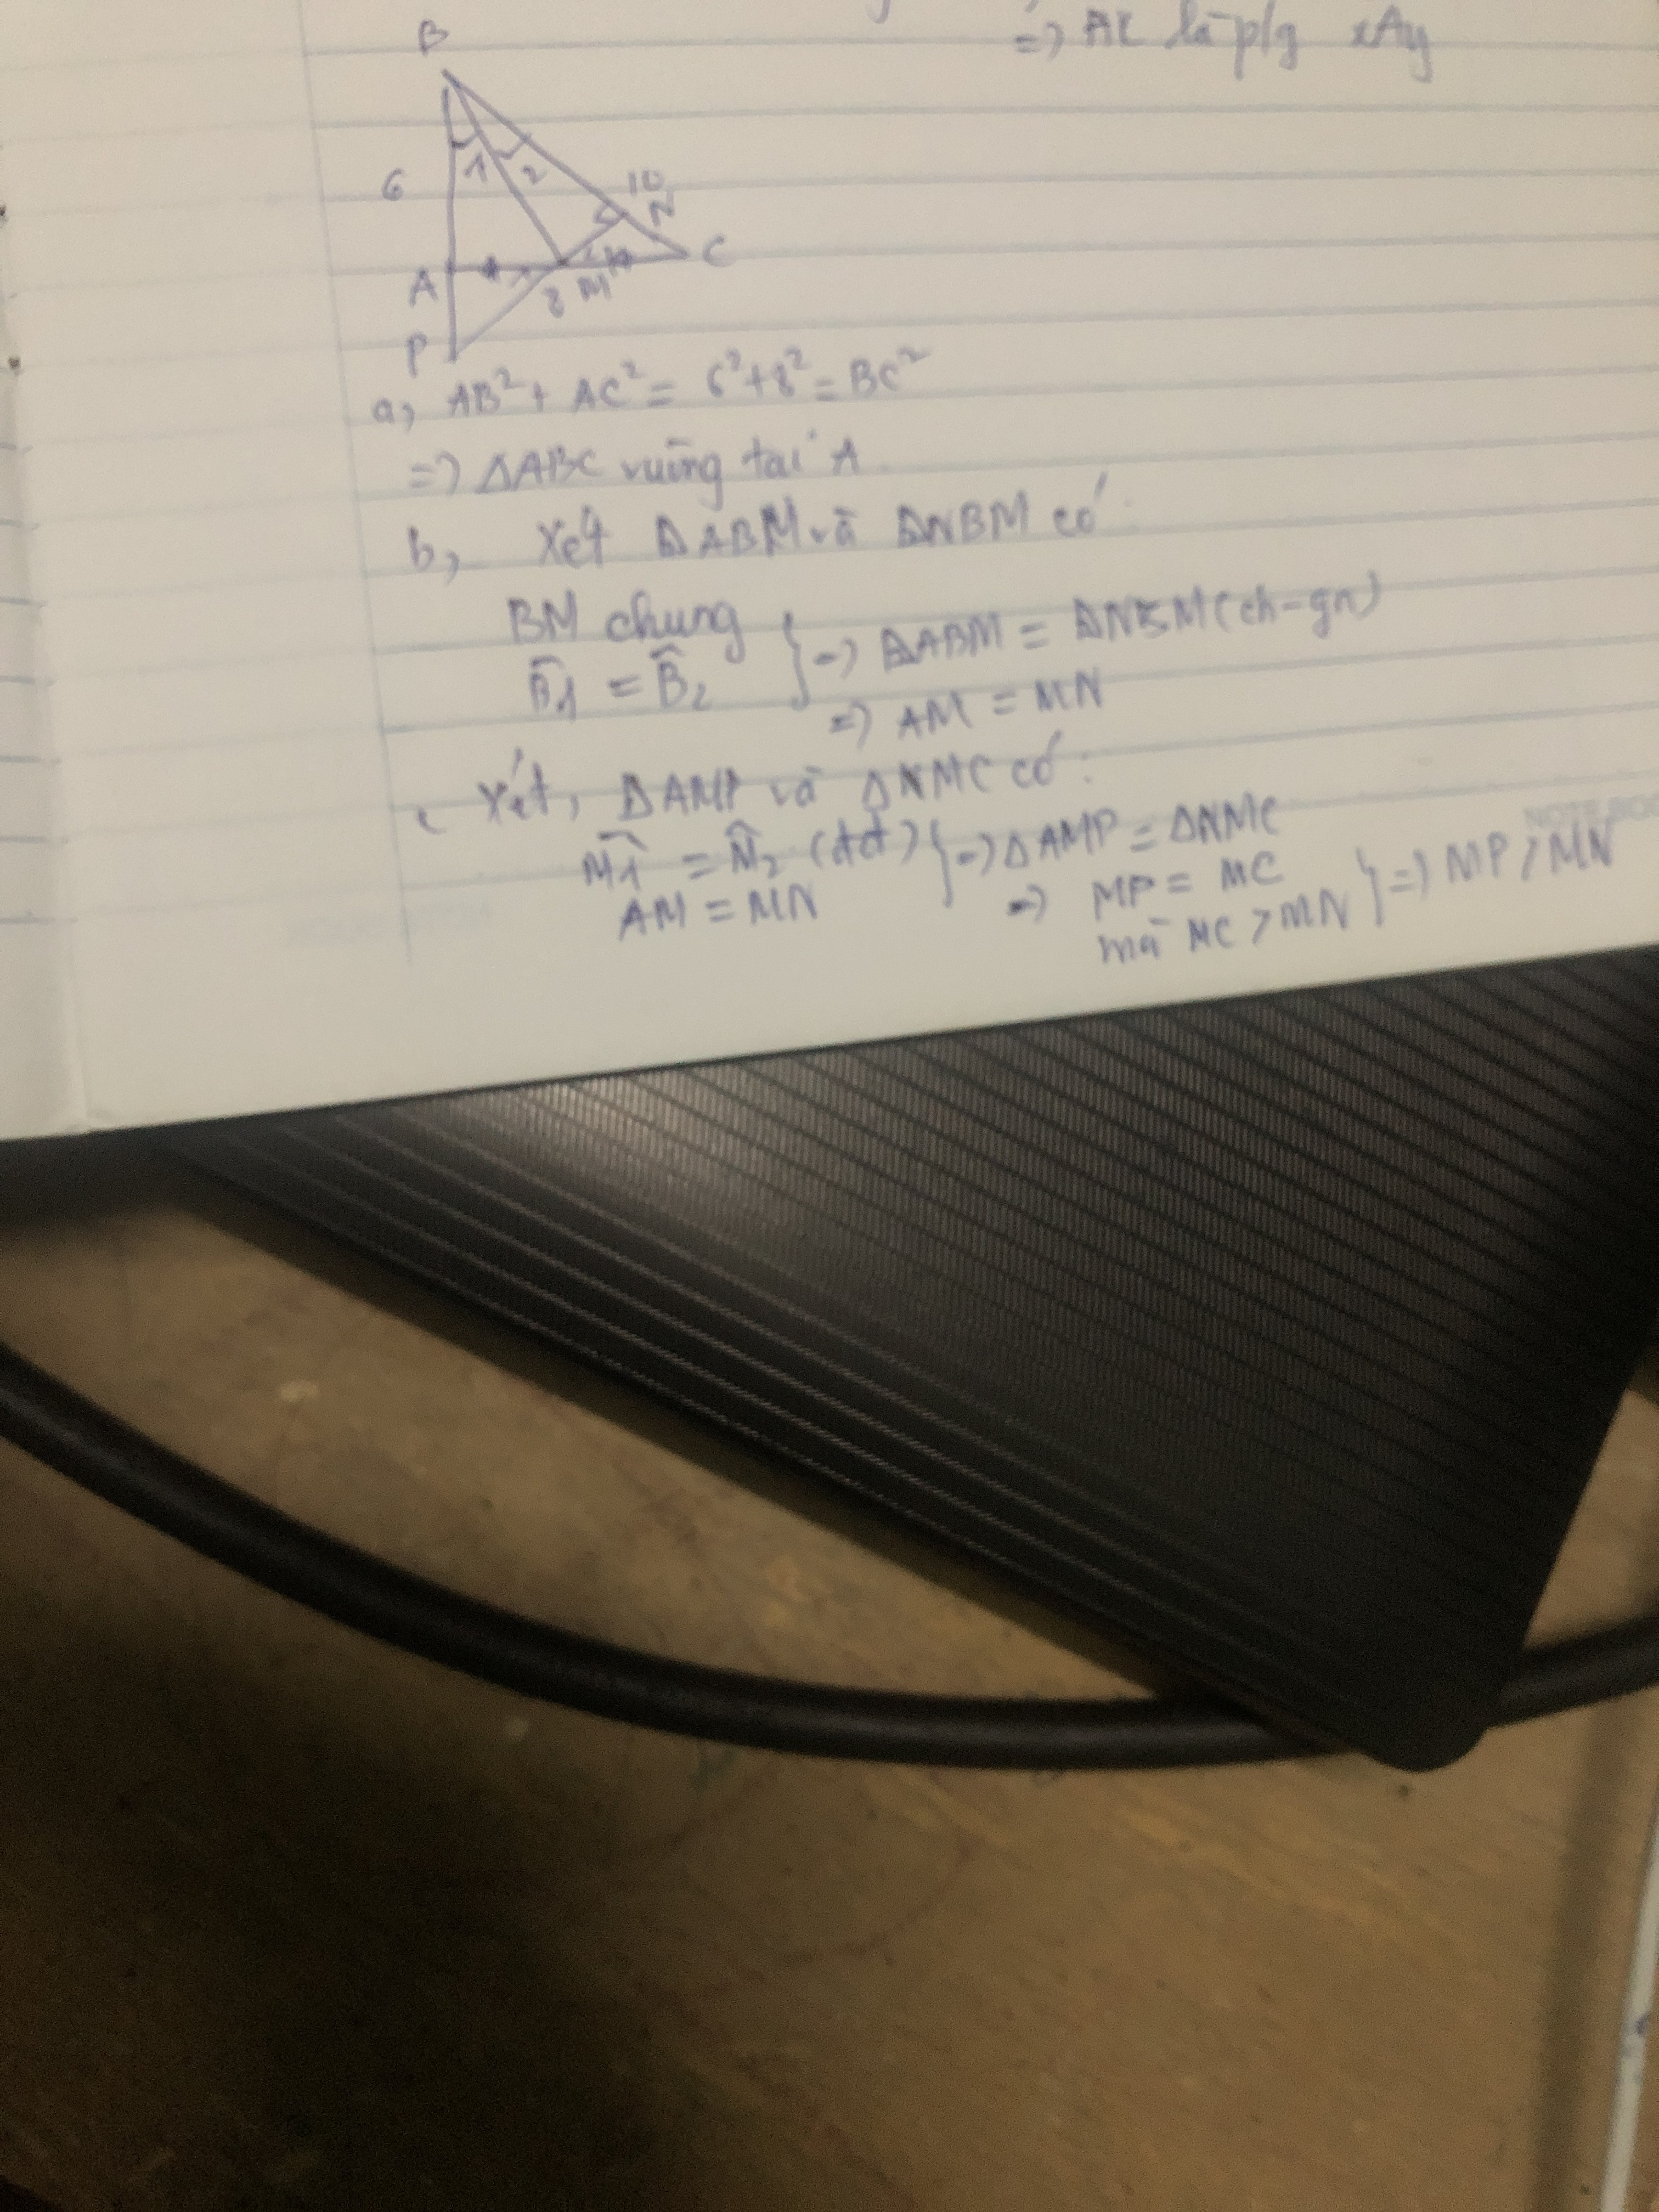 =) AC là p/g xAy
B
6
1 2
10
N
A
C
8 M
P
a, AB² + AC² = 6² + 8² = BC²
=) ΔABC vuông tại A
b, Xét ΔABM và ΔNBM có:
BM chung
B̂1 = B̂2
} =) ΔABM = ΔNBM (ch-gn)
=) AM = MN
c Xét, ΔAMP và ΔNMC có:
M̂1 = M̂2 (đđ)
AM = MN
} =) ΔAMP = ΔNMC
=) MP = MC
mà MC > MN
} =) MP > MN